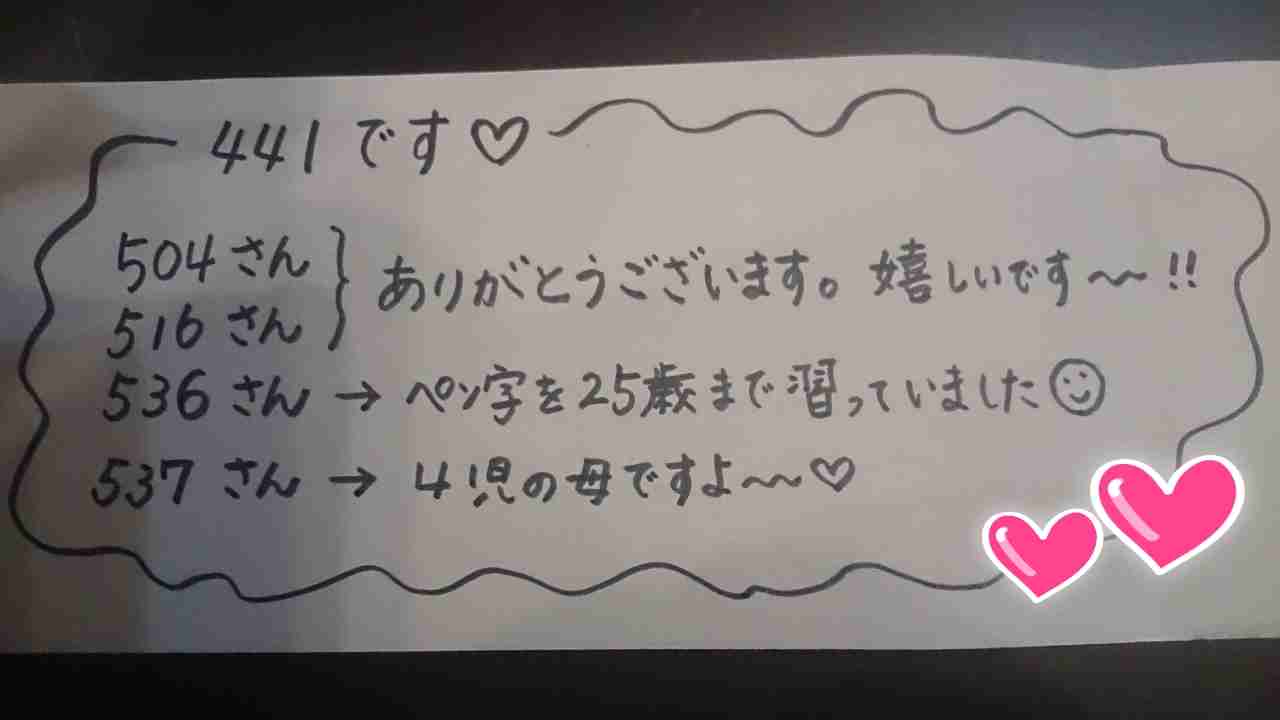 441です♡
504さん
516さん
ありがとうございます。嬉しいです〜!!
536さん → ペン字を25歳まで習っていました☺
537さん → 4児の母ですよ〜〜♡